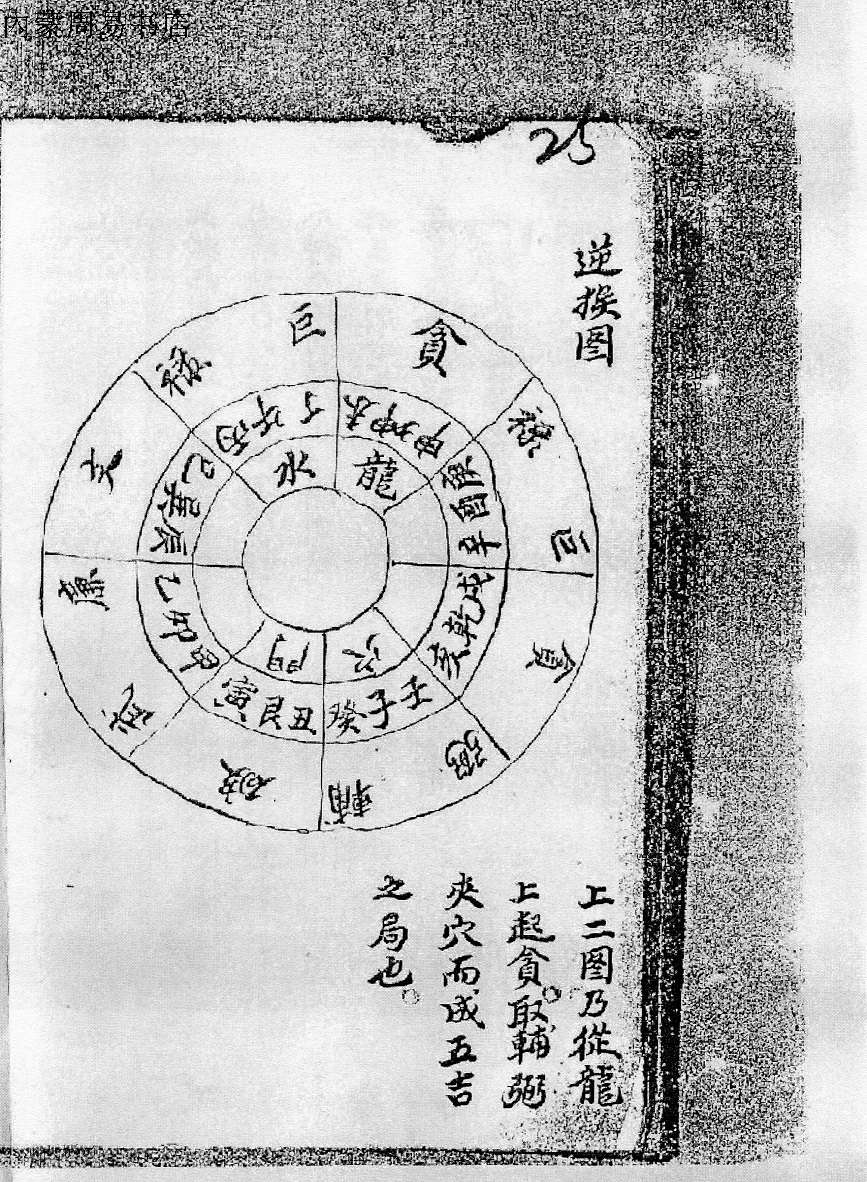 內蒙周易书店
25
逆挨图
貪
巨
祿
文
廉
武
破
輔
弼
貪
巨
祿
未坤申
丁午丙
巳巽辰
乙卯甲
寅艮丑
癸子壬
亥乾戌
辛酉庚
龍
水
門
穴
上二图乃從龍
上起貪。取輔弼
夾穴而成五吉
之局也。